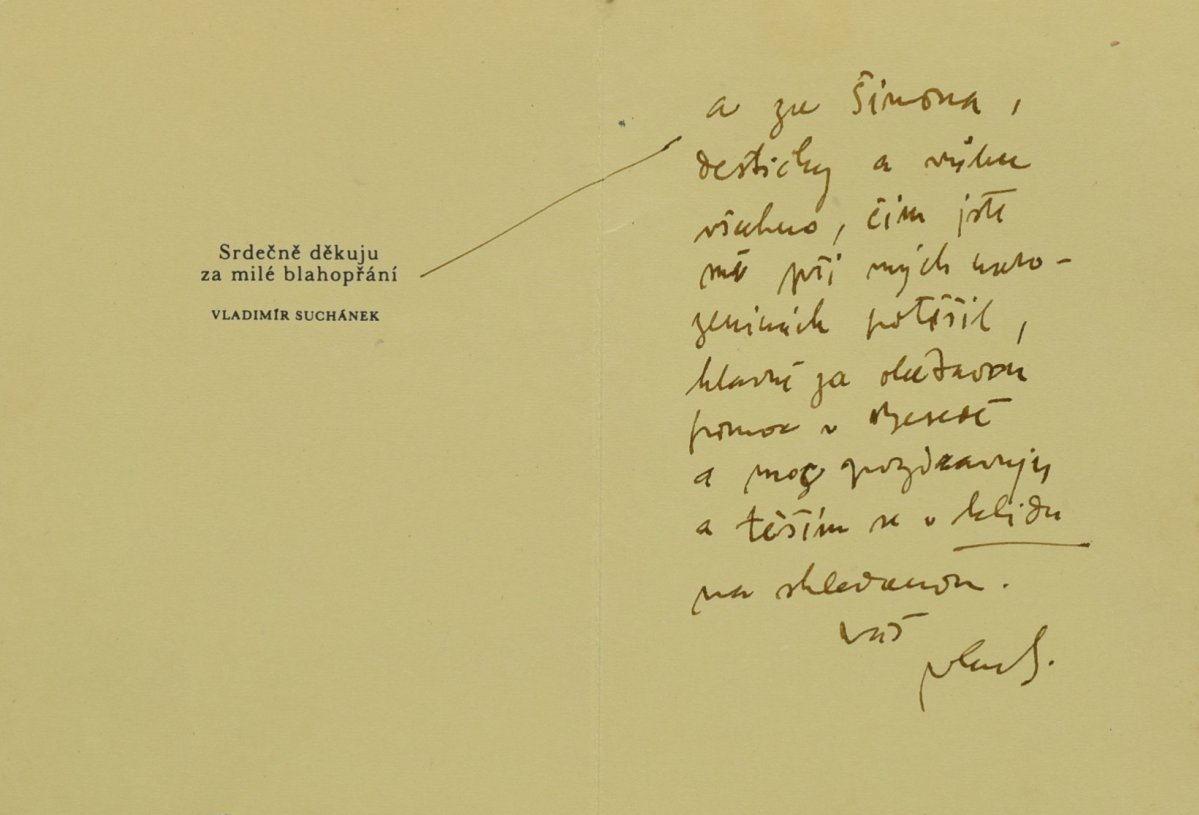 Srdečně děkuju
za milé blahopřání
VLADIMÍR SUCHÁNEK
a za Šimona,
destičky a
všechno, čím jste
mě při mých naro-
zeninách potěšil,
hlavně za
pomoc v Besedě
a moc pozdravuju
a těším se v klidu
na shledanou.
Váš